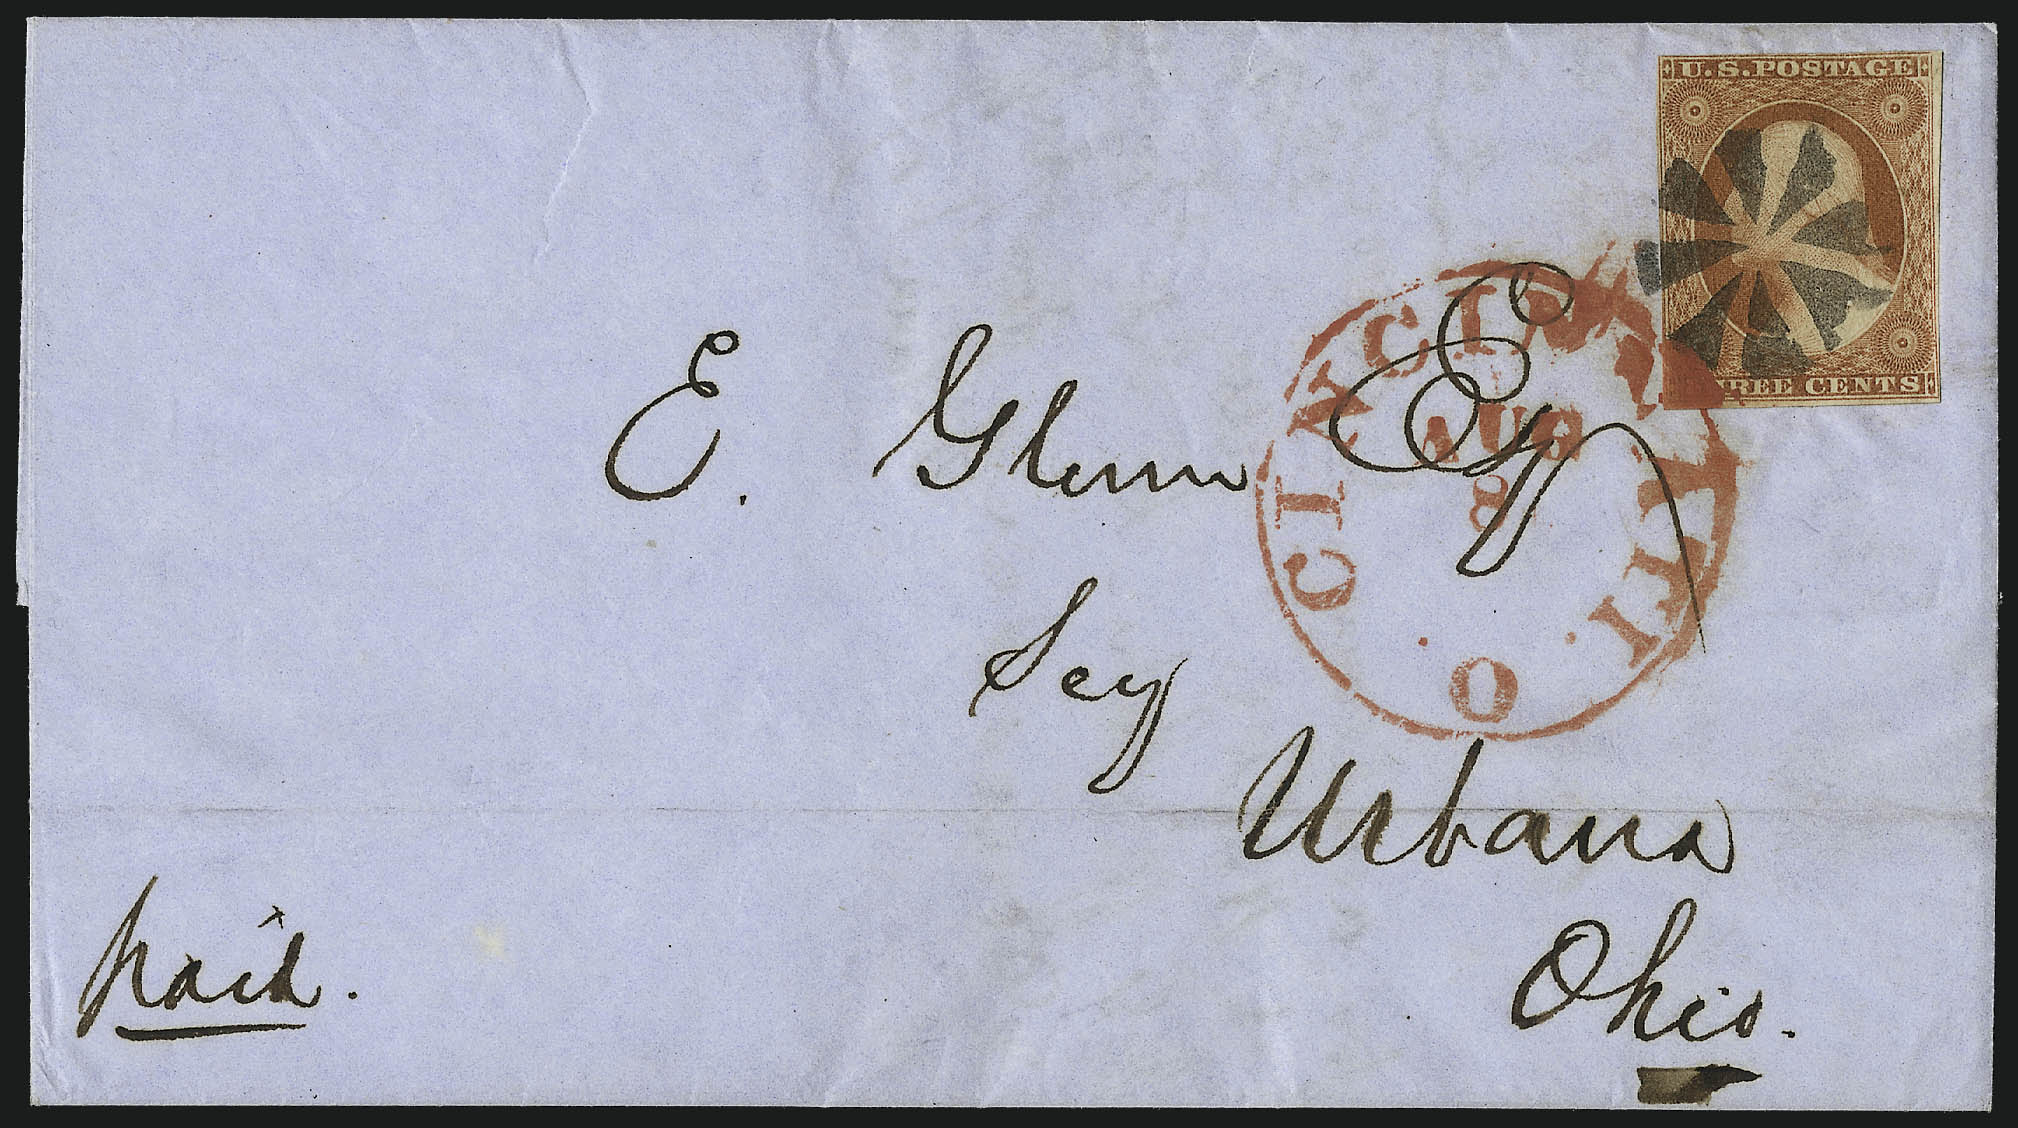 U.S. POSTAGE
THREE CENTS
CINCINNATI. O.
AUG
8
E. Glenn Esq
Secy
Urbana
Ohio.
paid.